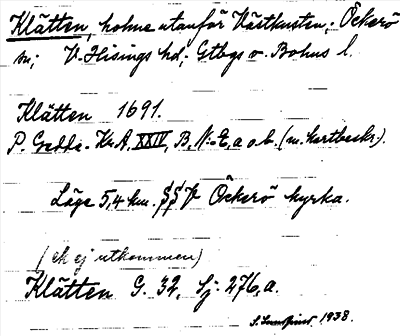 Klätten, holme utanför Västkusten; Öckerö
sn; V. Hisings hd. Gtbgs o. Bohus l.
Klätten 1691.
P. Gedda. Kr.A. XXIV, B, N:o 2, a o b. (m. kartbeskr.).
Läge 5,4 km. SSV Öckerö kyrka.
(ek ej utkommen)
Klätten G. 32, Sj. 276, a.
S. 1938.